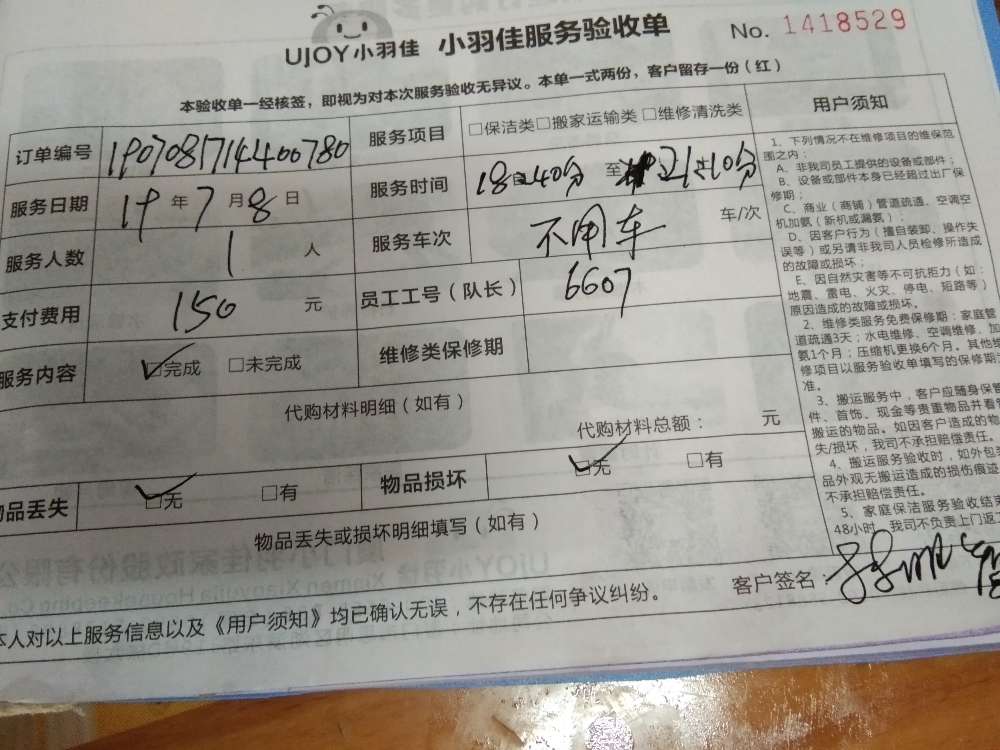 UJOY小羽佳 小羽佳服务验收单 No. 1418529
本验收单一经核签，即视为对本次服务验收无异议。本单一式两份，客户留存一份（红）
订单编号 1907081714400780 服务项目 □保洁类□搬家运输类 □维修清洗类
服务日期 19 年 7 月 8 日 服务时间 18 40分 至 21 10分
服务人数 1 人 服务车次 不用车 车/次
支付费用 150 元 员工工号（队长） 6607
服务内容 ☑完成 □未完成 维修类保修期
代购材料明细（如有）
代购材料总额： 元
物品丢失 ☑无 □有 物品损坏 ☑无 □有
物品丢失或损坏明细填写（如有）
客户签名：
本人对以上服务信息以及《用户须知》均已确认无误，不存在任何争议纠纷。
用户须知
1、下列情况不在维修项目的维保范
围之内：
A、非我司员工提供的设备或部件；
B、设备或部件本身已经超过出厂保
修期；
C、商业（商铺）管道疏通、空调空
机加氨（新机或漏氨）；
D、因客户行为（擅自装卸、操作失
误等）或另请非我司人员检修所造成
的故障或损坏；
E、因自然灾害等不可抗拒力（如：
地震、雷电、火灾、停电、短路等）
原因造成的故障或损坏。
2、维修类服务免费保修期：家庭管
道疏通3天；水电维修、空调维修、加
氨1个月；压缩机更换6个月。其他维
修项目以服务验收单填写的保修期
准。
3、搬运服务中，客户应随身保管
件、首饰、现金等贵重物品并看管
搬运的物品。如因客户造成的物
失/损坏，我司不承担赔偿责任。
4、搬运服务验收时，如外包装
品外观无搬运造成的损伤痕迹
不承担赔偿责任。
5、家庭保洁服务验收结束
48小时，我司不负责上门返